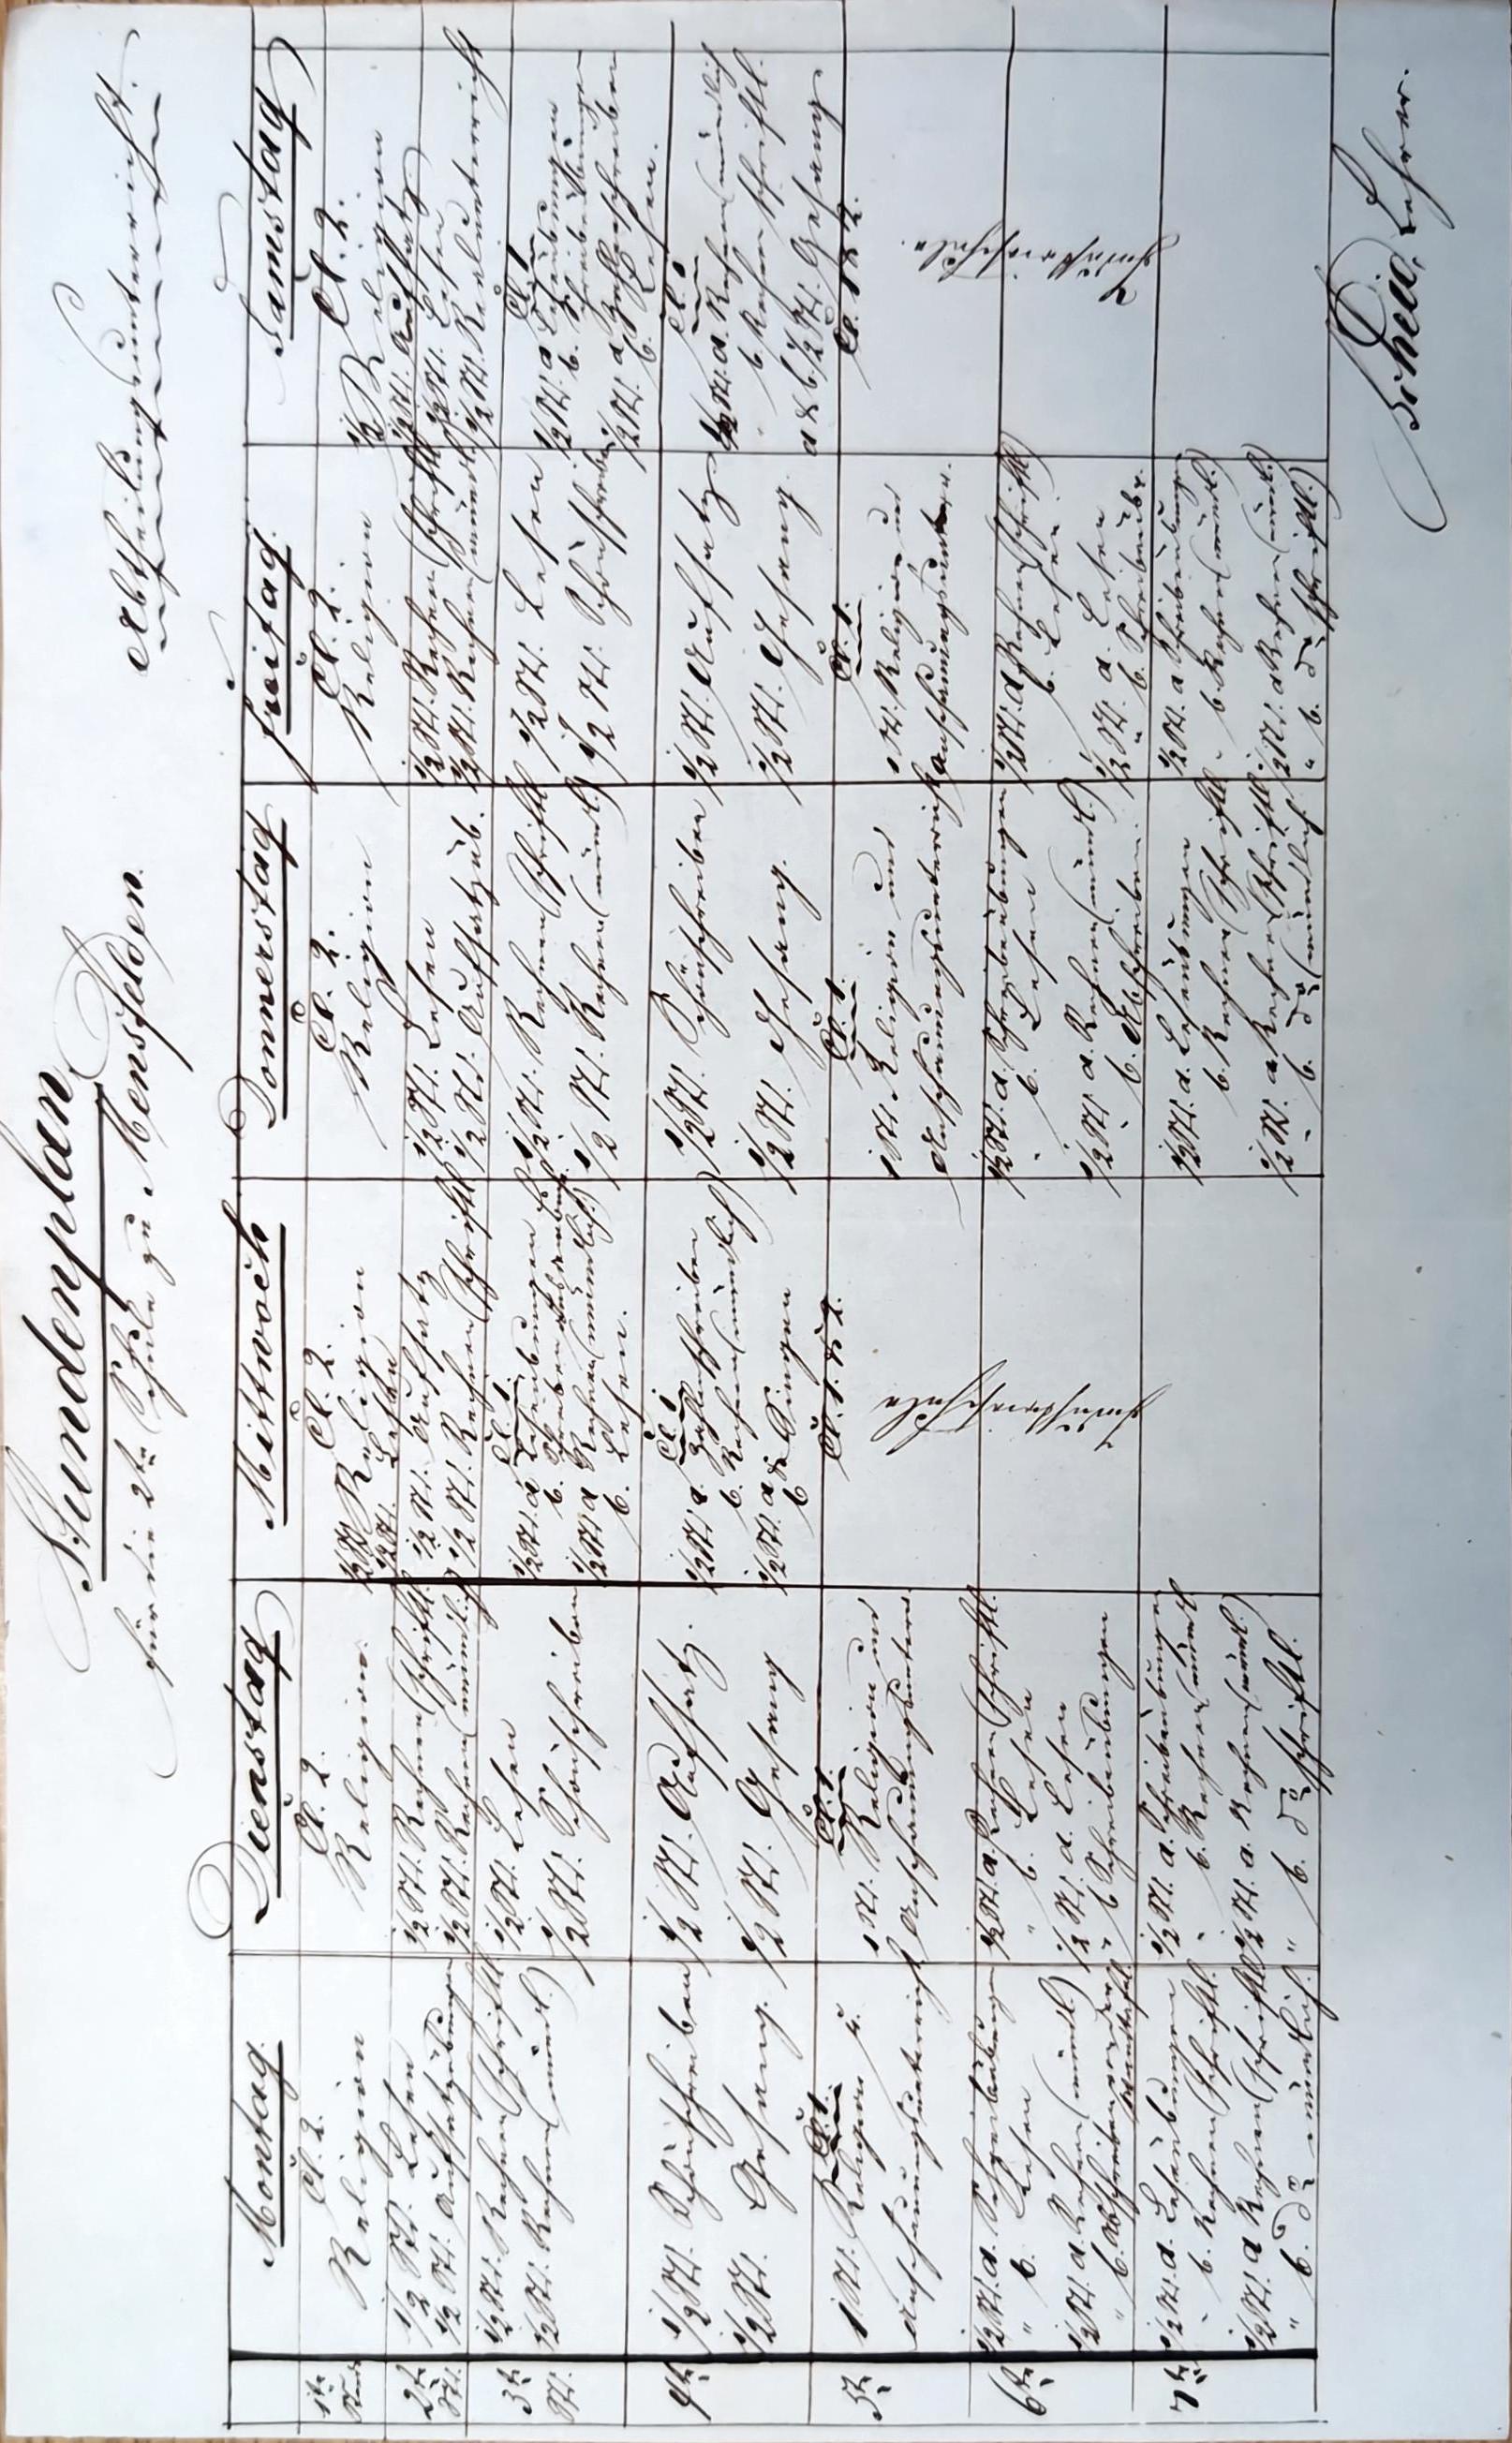 Stundenplan
für die 2te Schule zu Mensfelden.
Abtheilungsunterricht.
Montag
Dienstag
Mittwoch
Donnerstag
Freitag.
Samstag
1te Stunde
Cl. 2.
Religion
Cl. 2.
Religion.
Cl. 2.
1/2 St. Religion
1/2 St. Lesen
Cl. 2.
Religion
Cl. 2.
Religion
Cl. 2.
1/2 Religion
1/2 St. Aufsatz
2te St.
1/2 St. Lesen
1/2 St. Aufsatzübungen
1/2 St. Rechnen (schriftl.
1/2 St. Rechnen (mündl.)
1/2 St. Aufsatz
1/2 St. Rechnen (schriftl.
1/2 St. Lesen
1/2 St. Aufsatzüb.
1/2 St. Rechnen (schriftl.
1/2 St. Rechnen (mündl.
1/2 St. Lesen
1/2 St. Realunterricht
3te St.
1/2 St. Rechnen (schriftl.
1/2 St. Rechnen (mündl.)
1/2 St. Lesen
1/2 St. Schönschreiben
Cl. 1.
1/2 St. a Leseübungen
b. Schreiben
1/2 St. a Rechnen (mündlich.)
b. Lesen.
1/2 St. Rechnen (schriftl.
1/2 St. Rechnen (mündl.)
1/2 St. Lesen
1/2 St. Schönschreiben
Cl. 1
1/2 St. a Leseübungen
b. Schreibeübungen
1/2 St. a Zahlenschreiben
b. Lesen.
4te
1/2 St. Schönschreiben
1/2 St. Gesang.
1/2 St. Aufsatz.
1/2 St. Gesang
Cl. 1
1/2 St. a. Zahlenschreiben
b. Rechnen (mündlich)
1/2 St. a & b Singen
Cl. 1. & 2.
1/2 St. Schönschreiben
1/2 St. Gesang.
1/2 St. Aufsatz
1/2 St. Gesang.
Cl. 1
1/2 St. a. Rechnen (mündlich
b. Rechnen schriftl.
a & b. 1/2 St. Gesang
Cl. 1 & 2.
5te
Cl. 1.
1 St. Religion u.
Anschauungsunterricht
Cl. 1.
1 St. Religion und
Anschauungsunterr.
Industrieschule
Cl. 1.
1 St. Religion und
Anschauungsunterricht
Cl. 1.
1 St. Religion und
Anschauungsunterr.
Industrieschule.
6te
1/2 St. a. Schreibeübungen
" b. Lesen
1/2 St. a. Rechnen (mündl.)
" b. Abschreiben von der
Wandtafel.
1/2 St. a. Rechnen (schriftl.
" b. Lesen
1/2 St. a. Lesen
" b Schreibeübungen
1/2 St. a. Schreibeübungen
" b. Lesen
1/2 St. a. Rechnen (mündl.)
" b. Abschreiben.
1/2 St. a Rechnen (schriftl.)
b. Lesen
1/2 St. a. Lesen
" b. Schreibeüb.
7te
1/2 St. a. Leseübungen
" b. Rechnen (schriftl.
1/2 St. a Rechnen (schriftl.
" b. do mündlich.
1/2 St. a. Schreibeübungen
" b. Rechnen (mündl.
1/2 St. a. Rechnen (mündl.)
" b. do schriftl.
1/2 St. a. Leseübungen
b. Rechnen (schriftl.
1/2 St. a Rechnen (schriftl.
" b. do (mündlich
1/2 St. a. Schreibeübungen
" b. Rechnen (mündl.)
1/2 St. a Rechnen (mündl.)
" b. do (schriftl.)
Scheid, Lehrer.